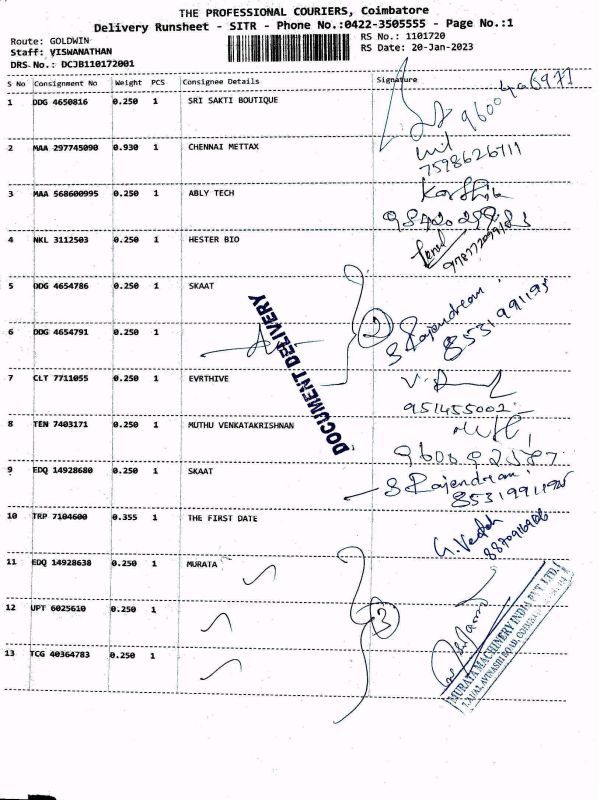 THE PROFESSIONAL COURIERS, Coimbatore
Delivery Runsheet - SITR - Phone No.:0422-3505555 - Page No.:1
Route: GOLDWIN
Staff: VISWANATHAN
DRS No.: DCJB110172001
RS No.: 1101720
RS Date: 20-Jan-2023
S No Consignment No Weight PCS Consignee Details Signature
1 DDG 4650816 0.250 1 SRI SAKTI BOUTIQUE
2 MAA 297745090 0.930 1 CHENNAI METTAX
7598626711
3 MAA 568600995 0.250 1 ABLY TECH
Karthik
4 NKL 3112503 0.250 1 HESTER BIO
5 DDG 4654786 0.250 1 SKAAT
2 S Rajendran
8531991195
6 DDG 4654791 0.250 1
DOCUMENT DELIVERY
7 CLT 7711055 0.250 1 EVRTHIVE
951455002
8 TEN 7403171 0.250 1 MUTHU VENKATAKRISHNAN
9 EDQ 14928680 0.250 1 SKAAT
S Rajendran
8531991195
10 TRP 7104600 0.355 1 THE FIRST DATE
11 EDQ 14928638 0.250 1 MURATA
12 UPT 6025610 0.250 1
3
13 TCG 40364783 0.250 1
MURATA MACHINERY INDIA PVT. LTD.
AVINASHI ROAD,